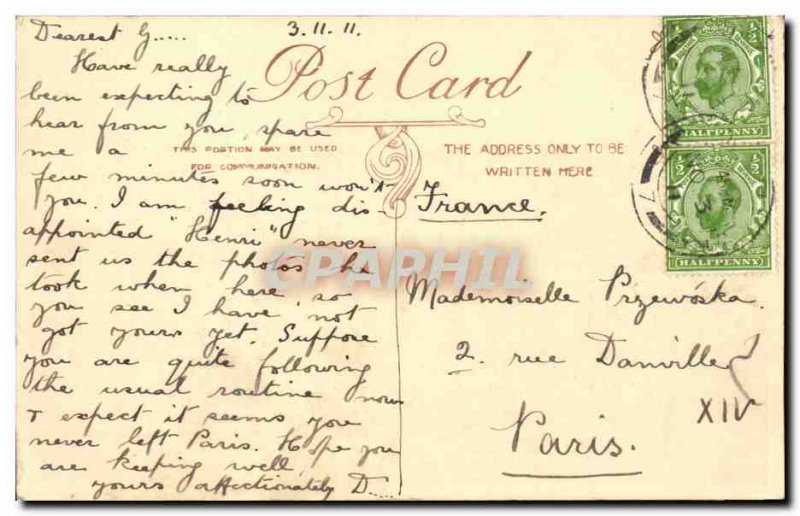 Dearest G.....
3.11.11.
Have really
been expecting to
hear from you, spare
me a
few minutes soon won't
you. I am feeling dis-
appointed "Henri" never
sent us the photos he
took when here, so
you see I have not
got yours yet. Suppose
you are quite following
the usual routine now
& expect it seems you
never left Paris. Hope you
are keeping well,
yours affectionately D....
Post Card
THIS PORTION MAY BE USED
FOR COMMUNICATION.
THE ADDRESS ONLY TO BE
WRITTEN HERE
France.
Mademoiselle Przewóska
2. rue Danville
Paris.
XIV
HALFPENNY
HALFPENNY
CPAPHIL